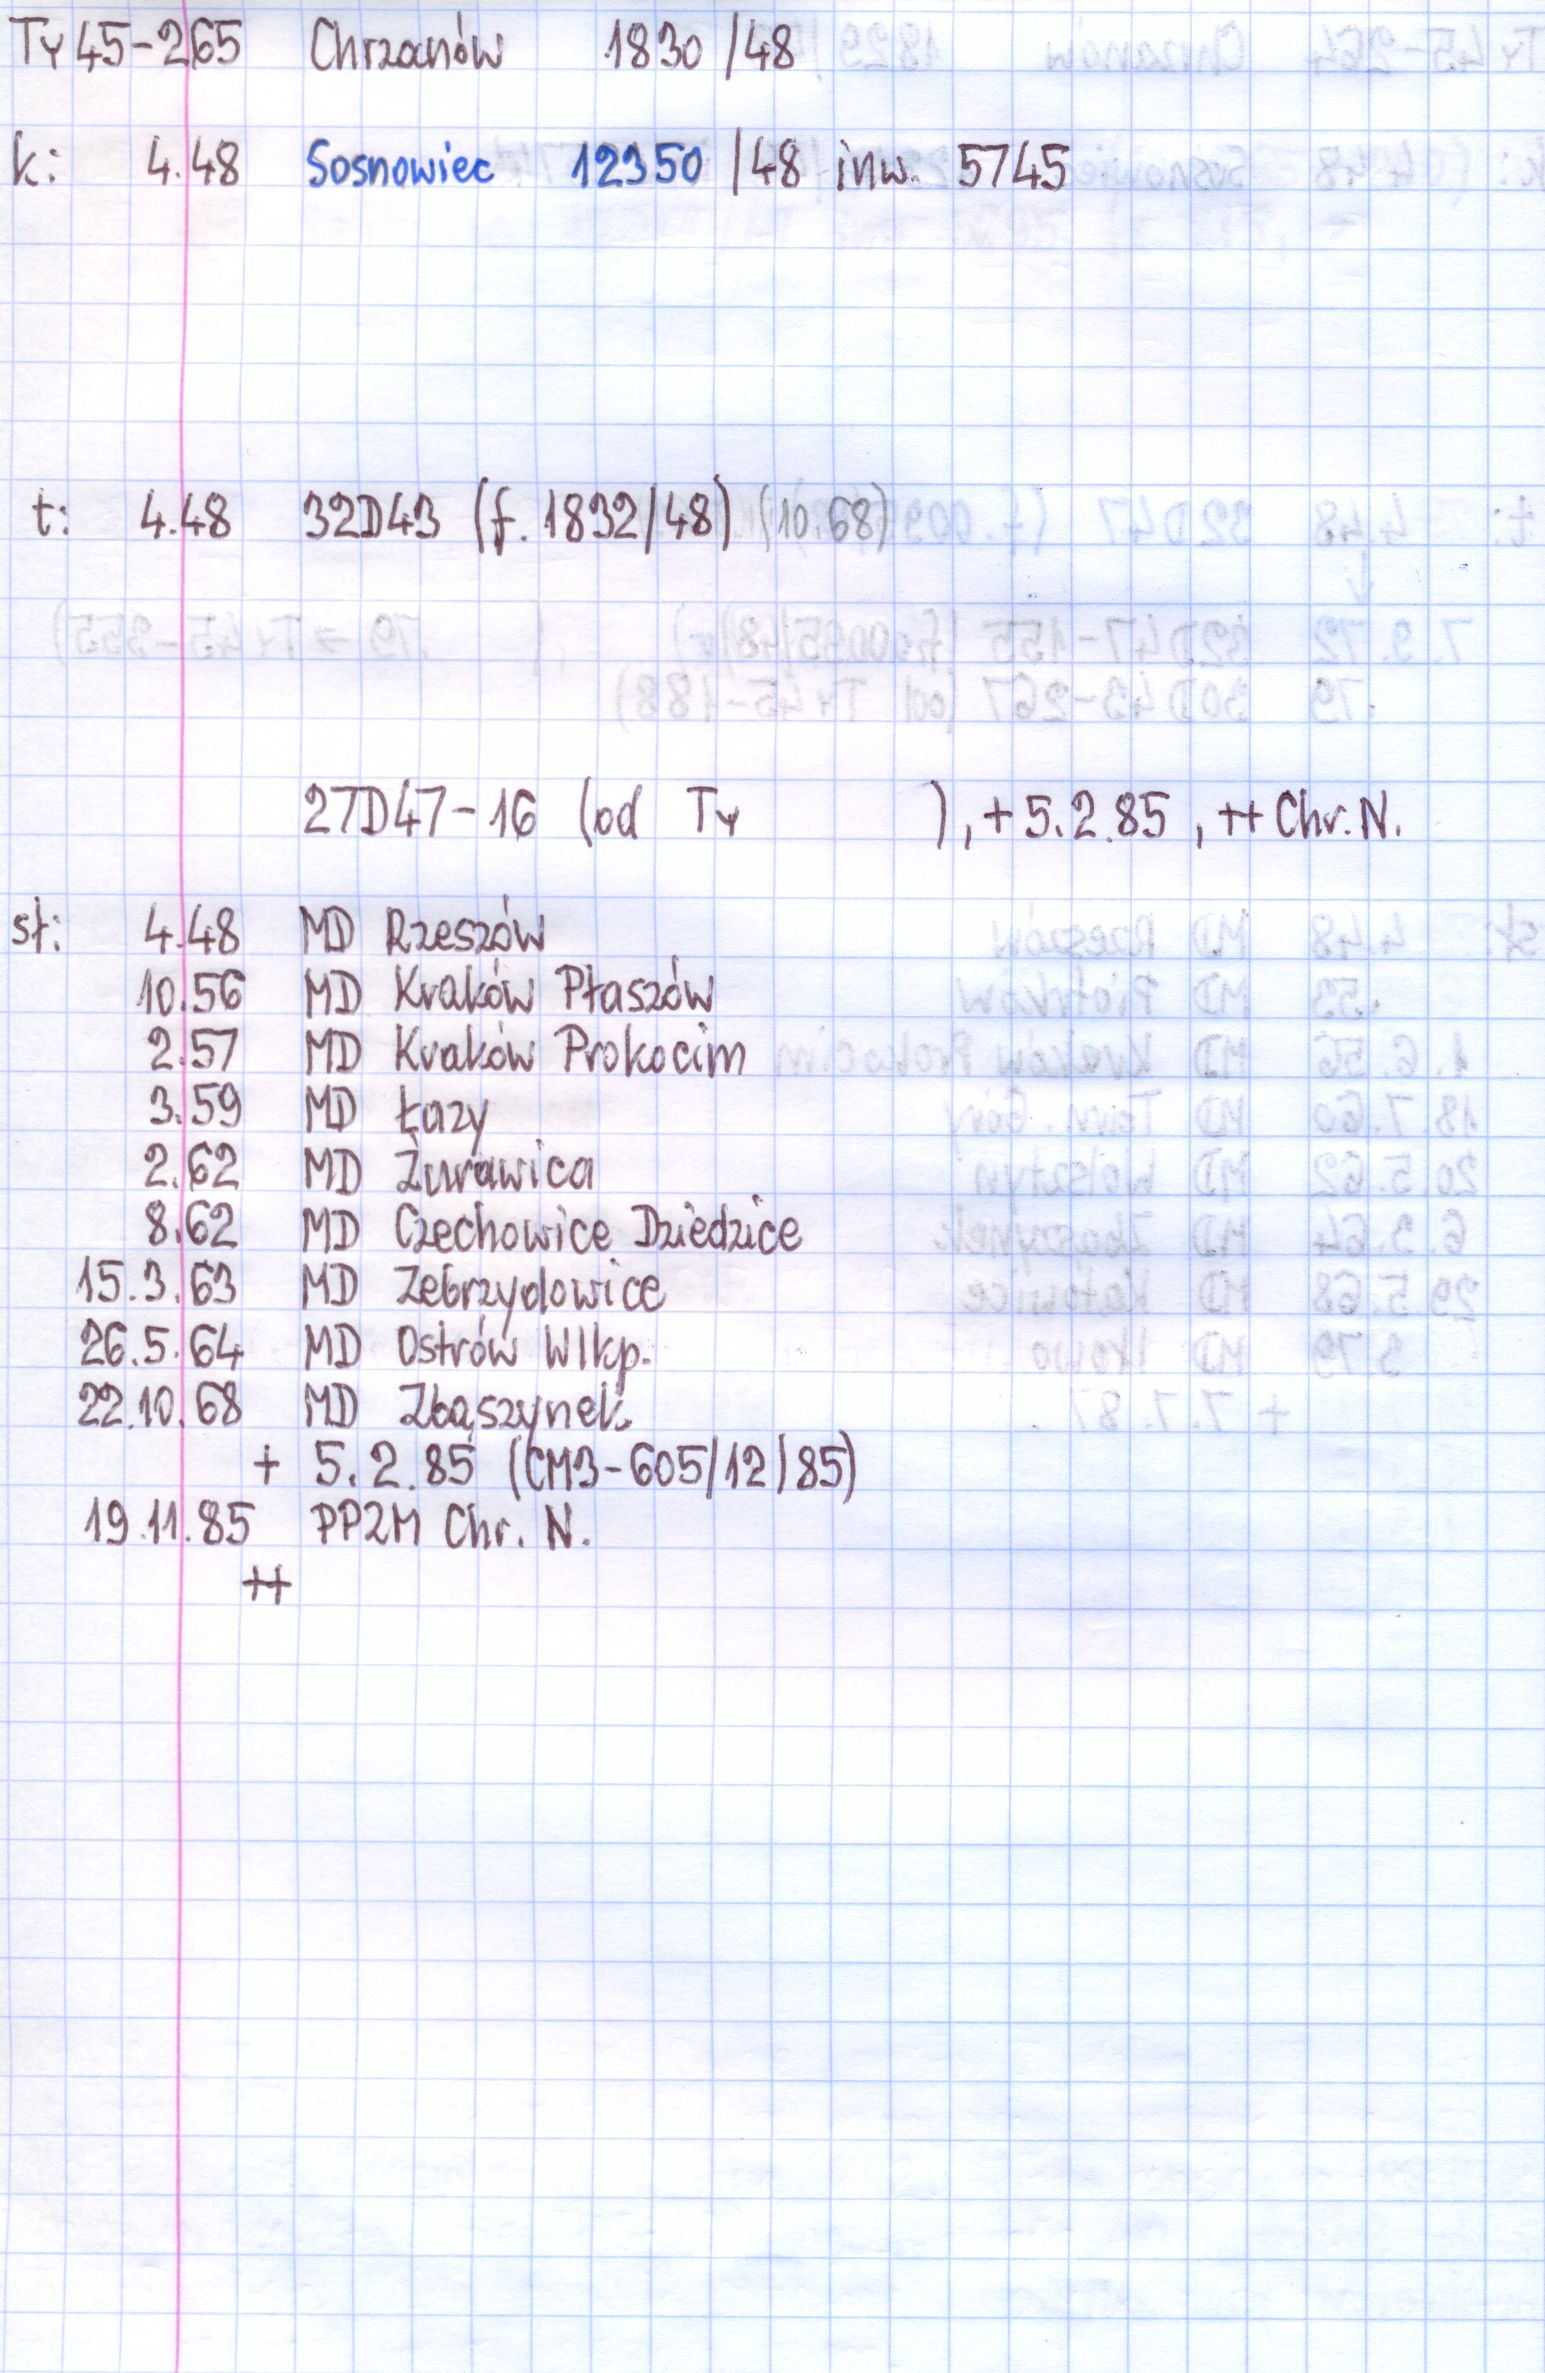 Ty45-265 Chrzanów 1830/48
k: 4.48 Sosnowiec 12350/48 inw. 5745
t: 4.48 32D43 (f. 1832/48) (10.68)
27D47-16 (od Ty ), + 5.2.85, ++ Chr. N.
sł: 4.48 MD Rzeszów
10.56 MD Kraków Płaszów
2.57 MD Kraków Prokocim
3.59 MD Łazy
2.62 MD Żurawica
8.62 MD Czechowice Dziedzice
15.3.63 MD Zebrzydowice
26.5.64 MD Ostrów Wlkp.
22.10.68 MD Zbąszynek
+ 5.2.85 (CM3-605/12/85)
19.11.85 PPZM Chr. N.
++